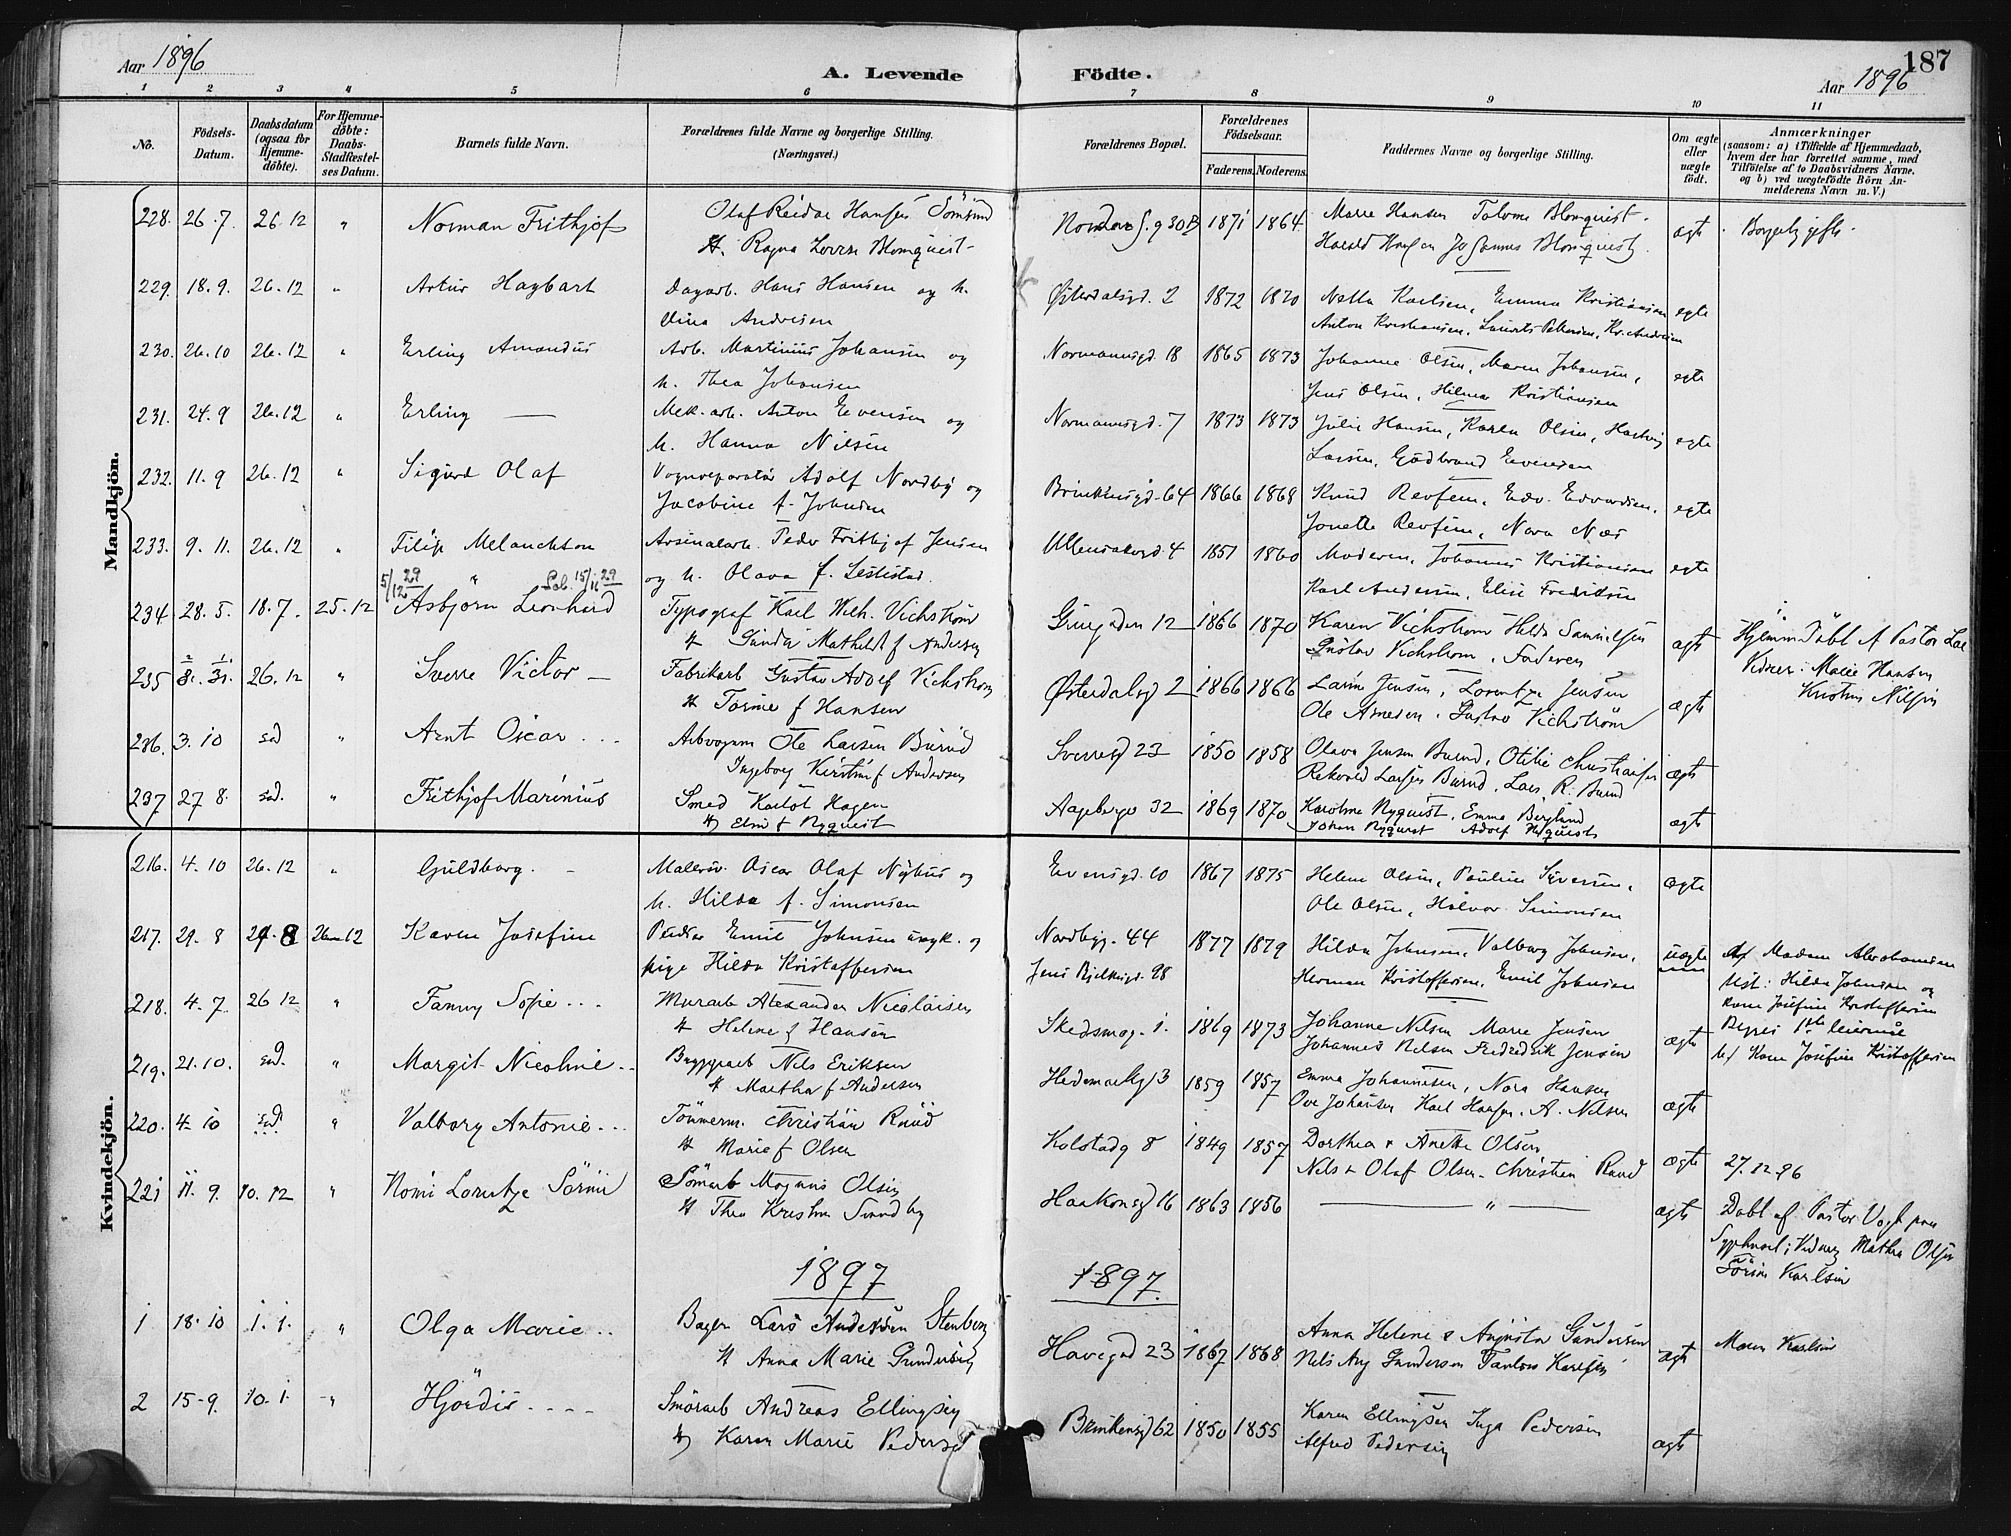 187
Aar 1896
A. Levende Födte.
Aar 1896
1 2 3 4 5 6 7 8 9 10 11
No. Födsels-Datum. Daabsdatum (ogsaa for Hjemme-døbte). For Hjemme-døbte: Daabs-Stadfæstel-ses Datum. Barnets fulde Navn. Forældrenes fulde Navne og borgerlige Stilling. (Næringsvei.) Forældrenes Bopæl. Forældrenes Födselsaar. Faderens. Moderens. Faddernes Navne og borgerlige Stilling. Om ægte eller uægte født. Anmærkninger (saasom: a) i Tilfælde af Hjemmedaab, hvem der har forrettet samme, med Tilföielse af to Daabsvidners Navne, og b) ved uægtefödte Börn An-melderens Navn m. V.)
Mandkjön.
228. 26.7. 26.12 " Norman Frithjof Olaf Reidar Hansen 1871 1864 Marie Hansen Blomquist. ægte Borgerlig gifte.
H. Ragna Blomquist Johannes Blomquist
229. 18.9. 26.12 " Artur Hagbart Dagarb. Hans Hansen og h. Østerdalsgd. 2 1872 1870 Netta Karlsen, Emma Kristiansen egte
Andresen Anton Kristiansen, Laurits Pettersen, Kr. Andresen
230. 26.10 26.12 " Erling Amandus Arb. Martinius Johansen og Normannsgd. 18 1865 1873 Johanne Olsen, Maren Johansen, egte
h. Thea Johansen Jens Olsen, Hilmar Kristiansen
231. 24.9 26.12 " Erling — Mek. arb. Anton Evensen og Normannsgd. 7 1873 1873 Julie Hansen, Karen Olsen, Hartvig egte
h. Hanna Nilsen Larsen, Gudbrand Evensen
232. 11.9 26.12 " Sigurd Olaf Vognreparatør Adolf Nordby og Brinkensgd. 64 1866 1868 Knud Revfem, Edv. Edvardsen, egte
Jacobine f. Johnsen Jonette Revfem, Nora Næs
233. 9.11. 26.12 " Filip Melanchton Arsenalarb. Peder Frithjof Jensen Ullensakergd. 4 1857 1860 Moderen, Johannes Kristiansen egte
5/12 29 " 15/11 29 og h. Olava f. Karl Andersen, Elise Fredriksen
234 28.5. 18.7. 25.12 Asbjørn Leonhard Typograf Karl Wilh. Vickstrøm Grüegaden 12 1866 1870 Karen Vickstrøm Hilda Samuelsen ægte Hjemmedøbt af Pastor
H Mathilde f Andersen Gustav Vickstrøm. Faderen Vidner: Marie Hansen
235 26.12 " Sverre Victor — Fabrikarb Gustav Adolf Vickstrøm Østerdalsgd 2 1866 1866 Jensen, Lorentze Jensen ægte
H f Hansen Ole Gustav Vickstrøm
236. 3.10 sad " Arnt Oscar ... Ole Larsen Burud Sverresgd 23 1850 1858 Olava Jensen Burud, Otilie Christiansen ægte
Ingeborg Kirstine f Andersen Larsen Burud. Lars R. Burud
237 27 8. sad. " Frithjof Marinius Smed Karlot Hagen Aagebergv 32 1869 1870 Karoline Nyquist, Emma Berglund ægte
H Elna f Nyquist Johan Nyquist Adolf Nyquist
Kvindekjön.
216. 4.10 26.12 " Guldborg. Malersv. Oscar Olaf Nyhus og Evensgd. 10 1867 1875 Helene Olsen, Pauline Syversen, ægte
h. Hilda f. Simonsen Ole Olsen, Halvor Simonsen
217. 29.8 29.8 26.12 Karen Josefine Emil Johnsen og Nordbyg. 44 1877 1879 Hilda Johnsen, Valborg Johnsen, uægte Af Madam Abrahamsen
pige Hilda Kristoffersen Jens Bjelkesgd. 28 Herman Kristoffersen, Emil Johnsen Vid: Hilda Johnsen og
218. 4.7 26 12 " Fanny Sofie ... Murarb Alexander Nicolaisen Skedsmog. 1. 1869 1873 Johanne Nilsen Marie Jensen ægte Karen Josefine Kristoffersen
H Helene f Hansen Johannes Nilsen Fredredrik Jensen leiermål
219. 21.10. sad. " Margit Nicoline .. Byggearb Nils Eriksen Hedemarksg 3 1859 1857 Emma Johannesen, Nora Hansen ægte Karen Josefine Kristoffersen
H Martha f Andersen Ove Johansen Karl Hansen. A. Nilsen
220. 4.10 sad. " Valborg Antonie ... Tömmerm. Christian Ruud Kolstadg 8 1849 1857 Dorthea & Anette Olsen ægte
H Marie f Olsen Nils & Olaf Olsen. Christian Ruud 27.12.96
221 11.9. 10.12 " Nomi Lorentze Magnus Olsen Haakonsgd 16 1863 1856 — " — ægte Døbt af Pastor Vogt paa
H Thea Sundby Sygehuset; Vidner Mathea Olsen
Karlsen
1897 1897.
1 18.10 1.1. " Olga Marie .. Bager Lars Andersen Stenberg Havegd 23 1867 1868 Anna Helene & Augusta Gundersen ægte Maren Karlsen
H Anna Marie Gundersen Nils Aug Gundersen
2 15-9. 10.1. " Hjördis .... Andreas Ellingsen Brinkensgd 62 1850 1855 Karen Ellingsen Inga Pedersen ægte
H Karen Marie Pedersen Alfred Pedersen